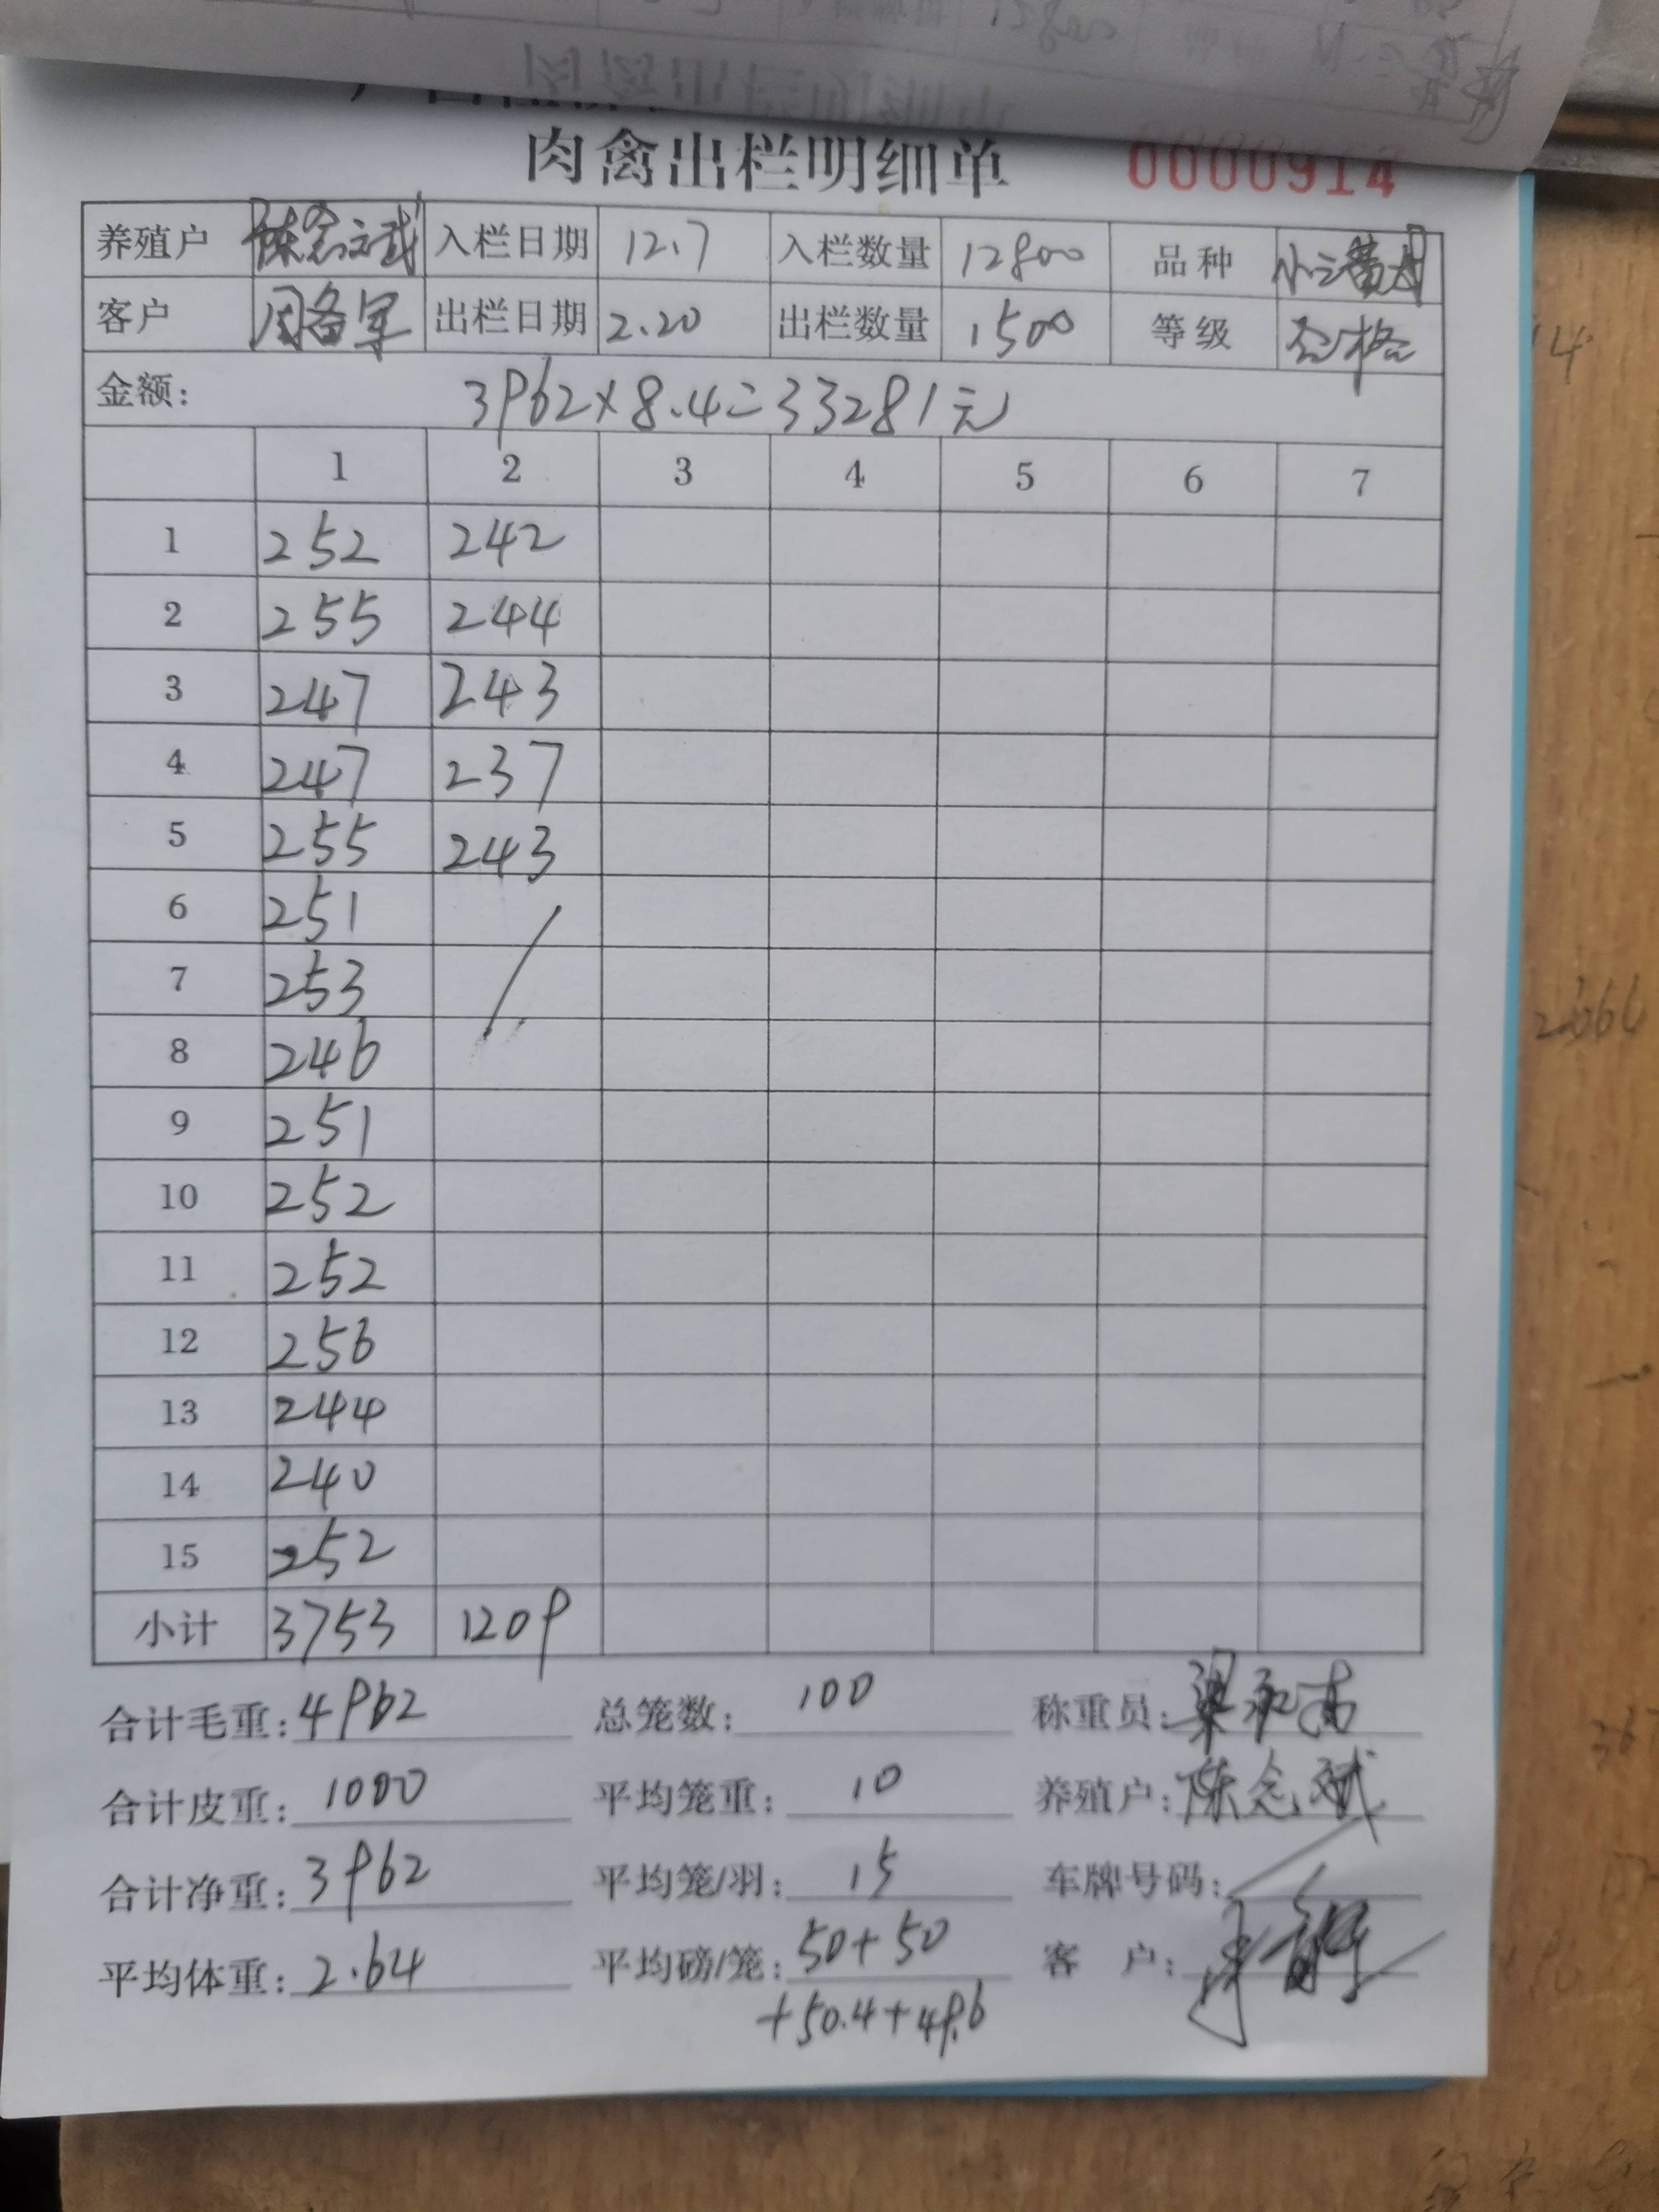 肉禽出栏明细单 0000914
养殖户 陈念斌 入栏日期 12.7 入栏数量 12800 品种
客户 出栏日期 2.20 出栏数量 1500 等级 合格
金额: 3962×8.4=33281元
1 2 3 4 5 6 7
1 252 242
2 255 244
3 247 243
4 247 237
5 255 243
6 251
7 253
8 246
9 251
10 252
11 252
12 256
13 244
14 240
15 252
小计 3753 1209
合计毛重: 4962 总笼数: 100 称重员:
合计皮重: 1000 平均笼重: 10 养殖户: 陈念斌
合计净重: 3962 平均笼/羽: 15 车牌号码:
平均体重: 2.64 平均磅/笼: 50+50 客 户:
+50.4+49.6